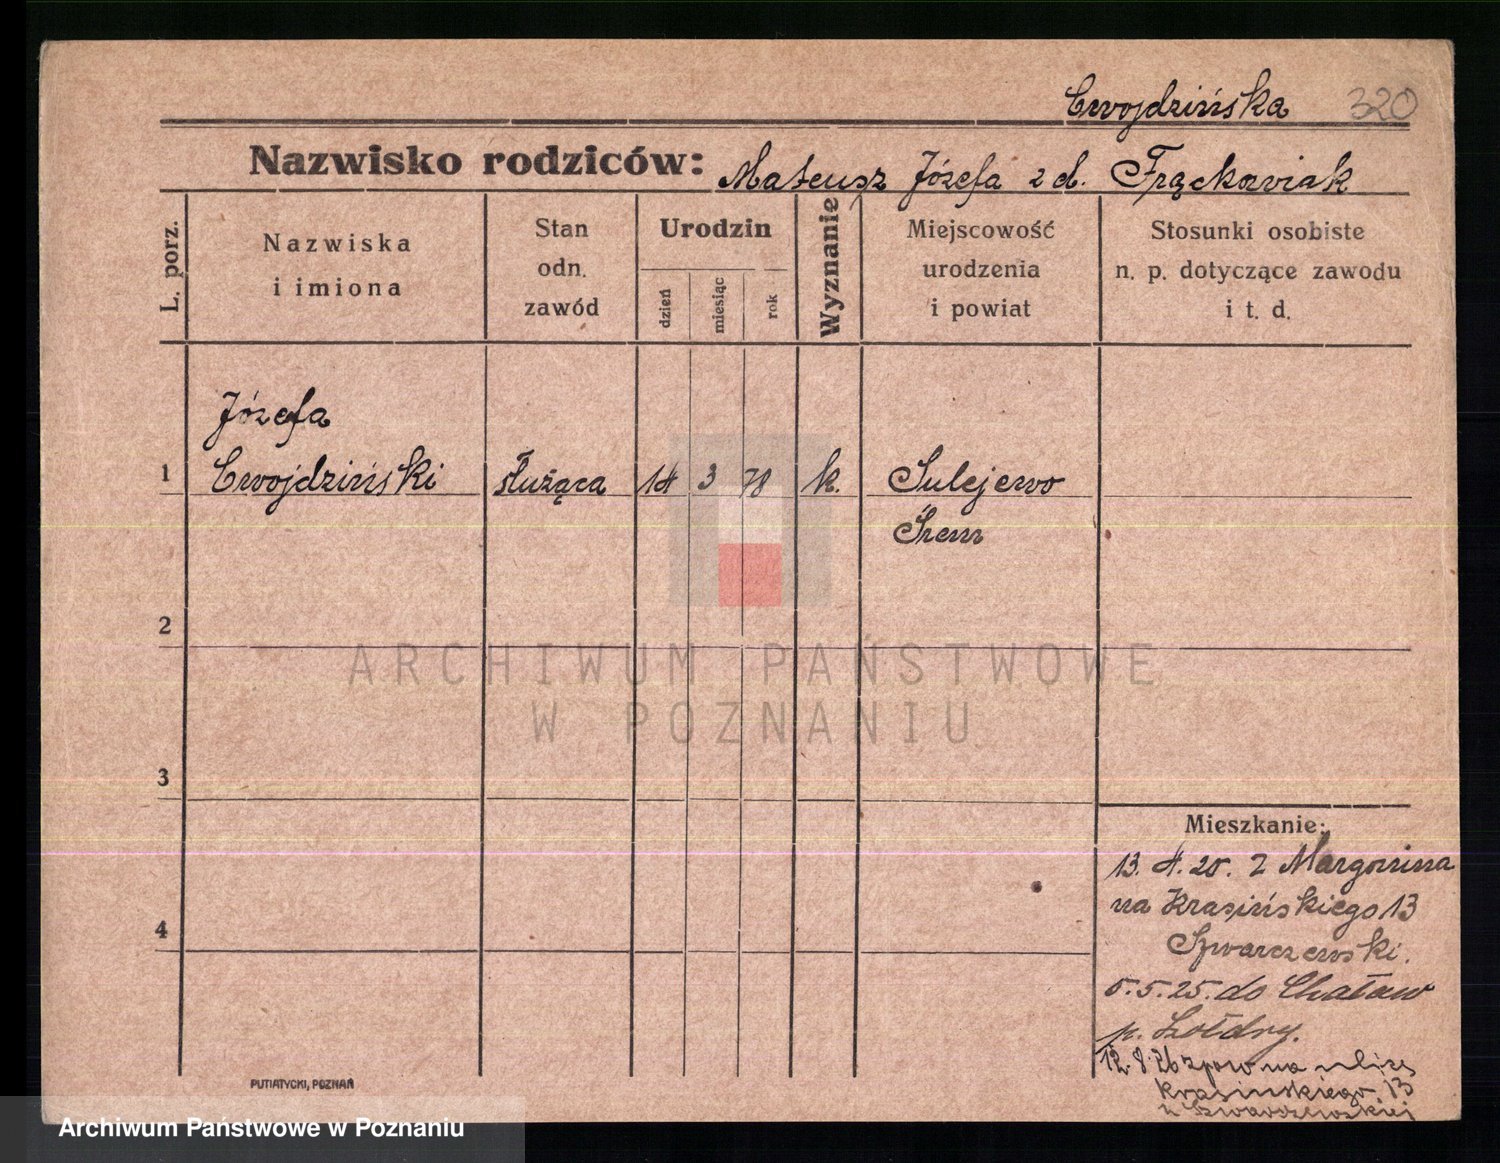 Cwojdzińska 320
Nazwisko rodziców: Mateusz Józefa z d. Frąckowiak
L. porz.
Nazwiska
i imiona
Stan
odn.
zawód
Urodzin
dzień
miesiąc
rok
Wyznanie
Miejscowość
urodzenia
i powiat
Stosunki osobiste
n. p. dotyczące zawodu
i t. d.
Józefa
1 Cwojdziński służąca 14 3 78 k. Sulejewo
Śrem
2
ARCHIWUM PAŃSTWOWE
W POZNANIU
3
Mieszkanie:
13. 4. 20. z Margonina
na Krasińskiego 13
Szwarczewski.
4
5.5.25. do Chaław
p. Żołdry.
12.8.26 zpow na ulicę
Krasinskiego 13
u Szwarszewskiej
PUTIATYCKI, POZNAŃ
Archiwum Państwowe w Poznaniu